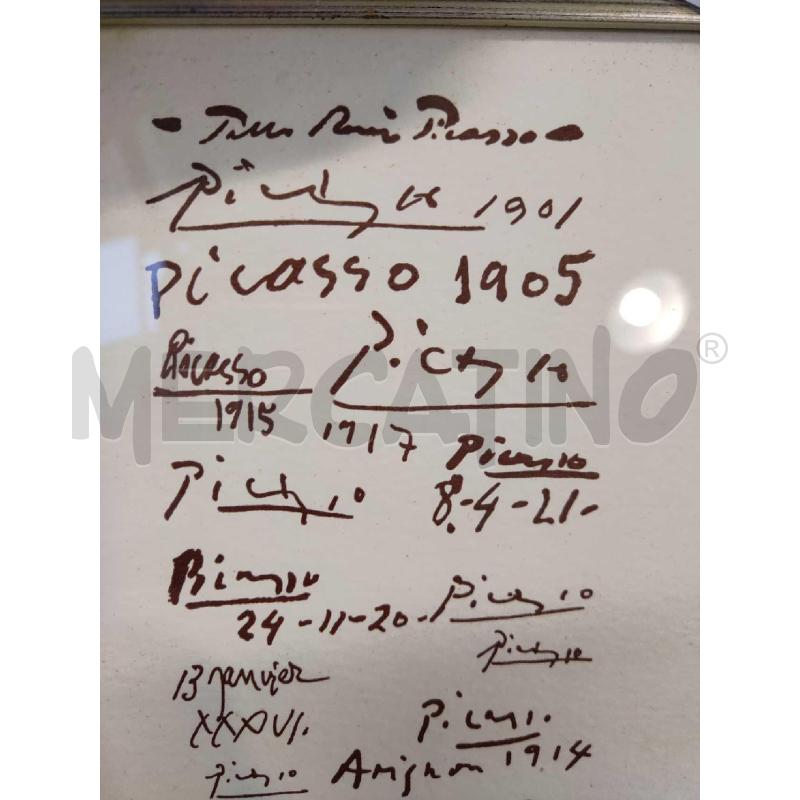 - Pablo Ruiz Picasso -
Picasso 1901
Picasso 1905
Picasso Picasso
1915 1917
Picasso Picasso
8-4-21-
Picasso
24-11-20- Picasso
Picasso
13 janvier
XXXVI. Picasso
Picasso Avignon 1914
MERCATINO®